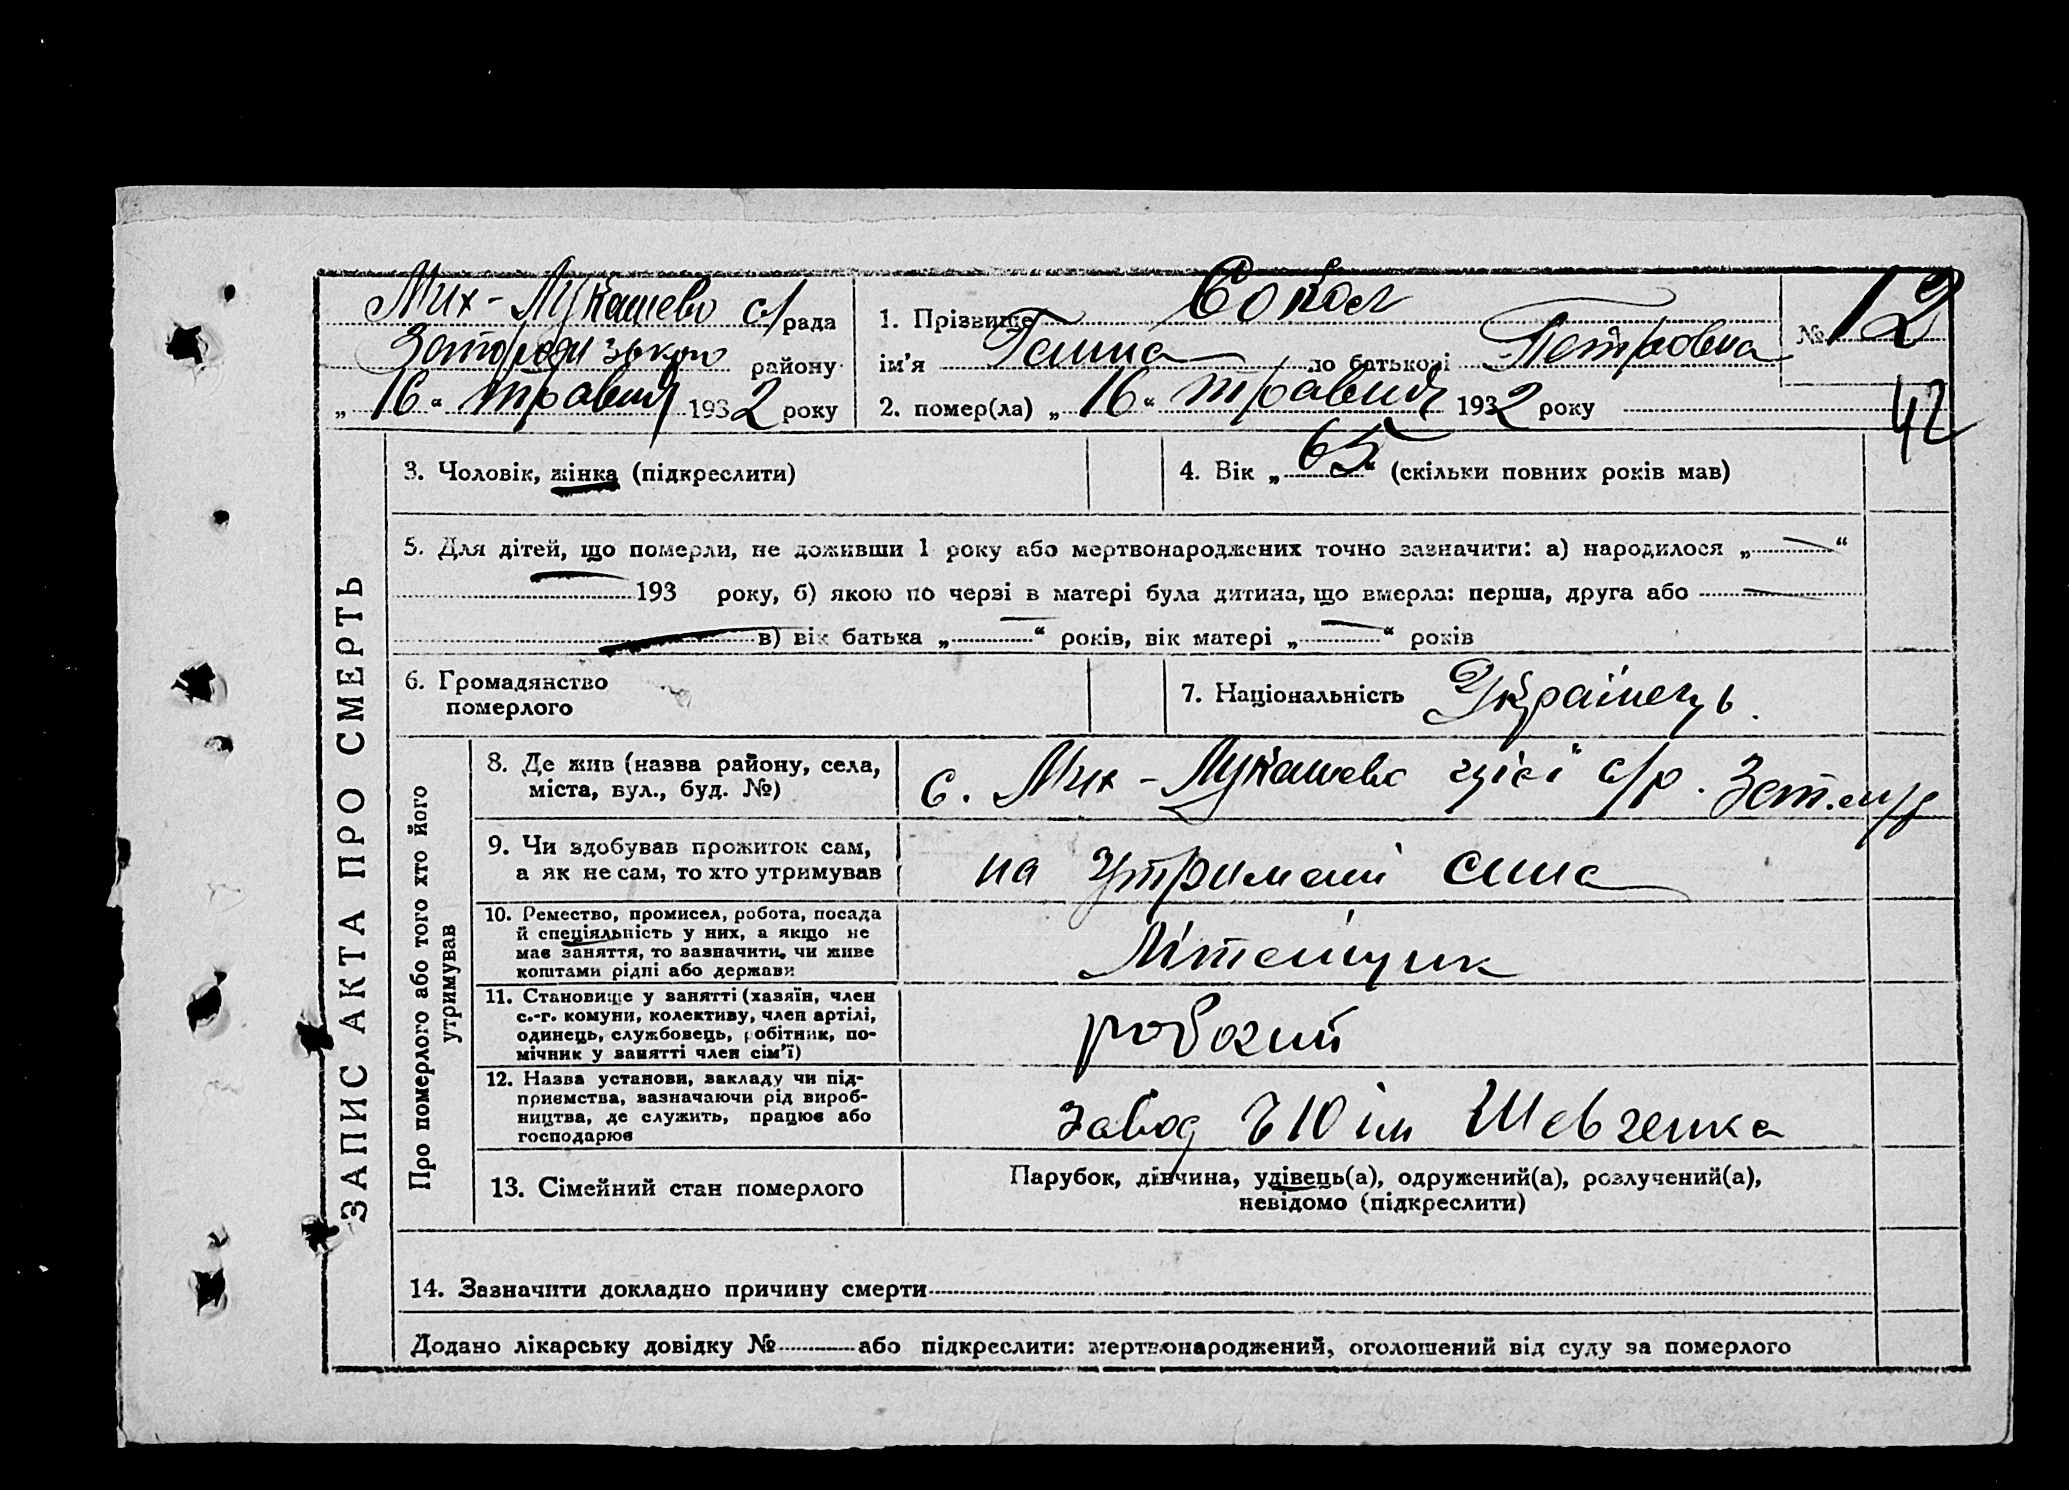 Мих-Лукашево с/рада
Запорізького району
„16“ травня 1932 року
1. Прізвище Сокол
ім'я Ганна по батькові Петровна
2. помер(ла) „16“ травня 1932 року
№ 12
42
ЗАПИС АКТА ПРО СМЕРТЬ
3. Чоловік, жінка (підкреслити)
4. Вік „65“ (скільки повних років мав)
5. Для дітей, що померли, не доживши 1 року або мертвонароджених точно зазначити: а) народилося „—“
— 193 року, б) якою по черзі в матері була дитина, що вмерла: перша, друга або —
— в) вік батька „—“ років, вік матері „—“ років
6. Громадянство
померлого
7. Національність Українець.
Про померлого або того хто його
утримував
8. Де жив (назва району, села,
міста, вул., буд. №)
с. Мих-Лукашево цієї с/р.
9. Чи здобував прожиток сам,
а як не сам, то хто утримував
на утримані сина
10. Ремество, промисел, робота, посада
й спеціяльність у них, а якщо не
має заняття, то зазначити, чи живе
коштами рідні або держави
Літейщик
11. Становище у занятті (хазяїн, член
с.-г. комуни, колективу, член артілі,
одинець, службовець, робітник, по-
мічник у занятті член сім'ї)
робочий
12. Назва установи, закладу чи під-
приємства, зазначаючи рід вироб-
ництва, де служить, працює або
господарює
завод 10 ім Шевченка
13. Сімейний стан померлого
Парубок, дівчина, удівець(а), одружений(а), розлучений(а),
невідомо (підкреслити)
14. Зазначити докладно причину смерти
Додано лікарську довідку № або підкреслити: мертвонароджений, оголошений від суду за померлого